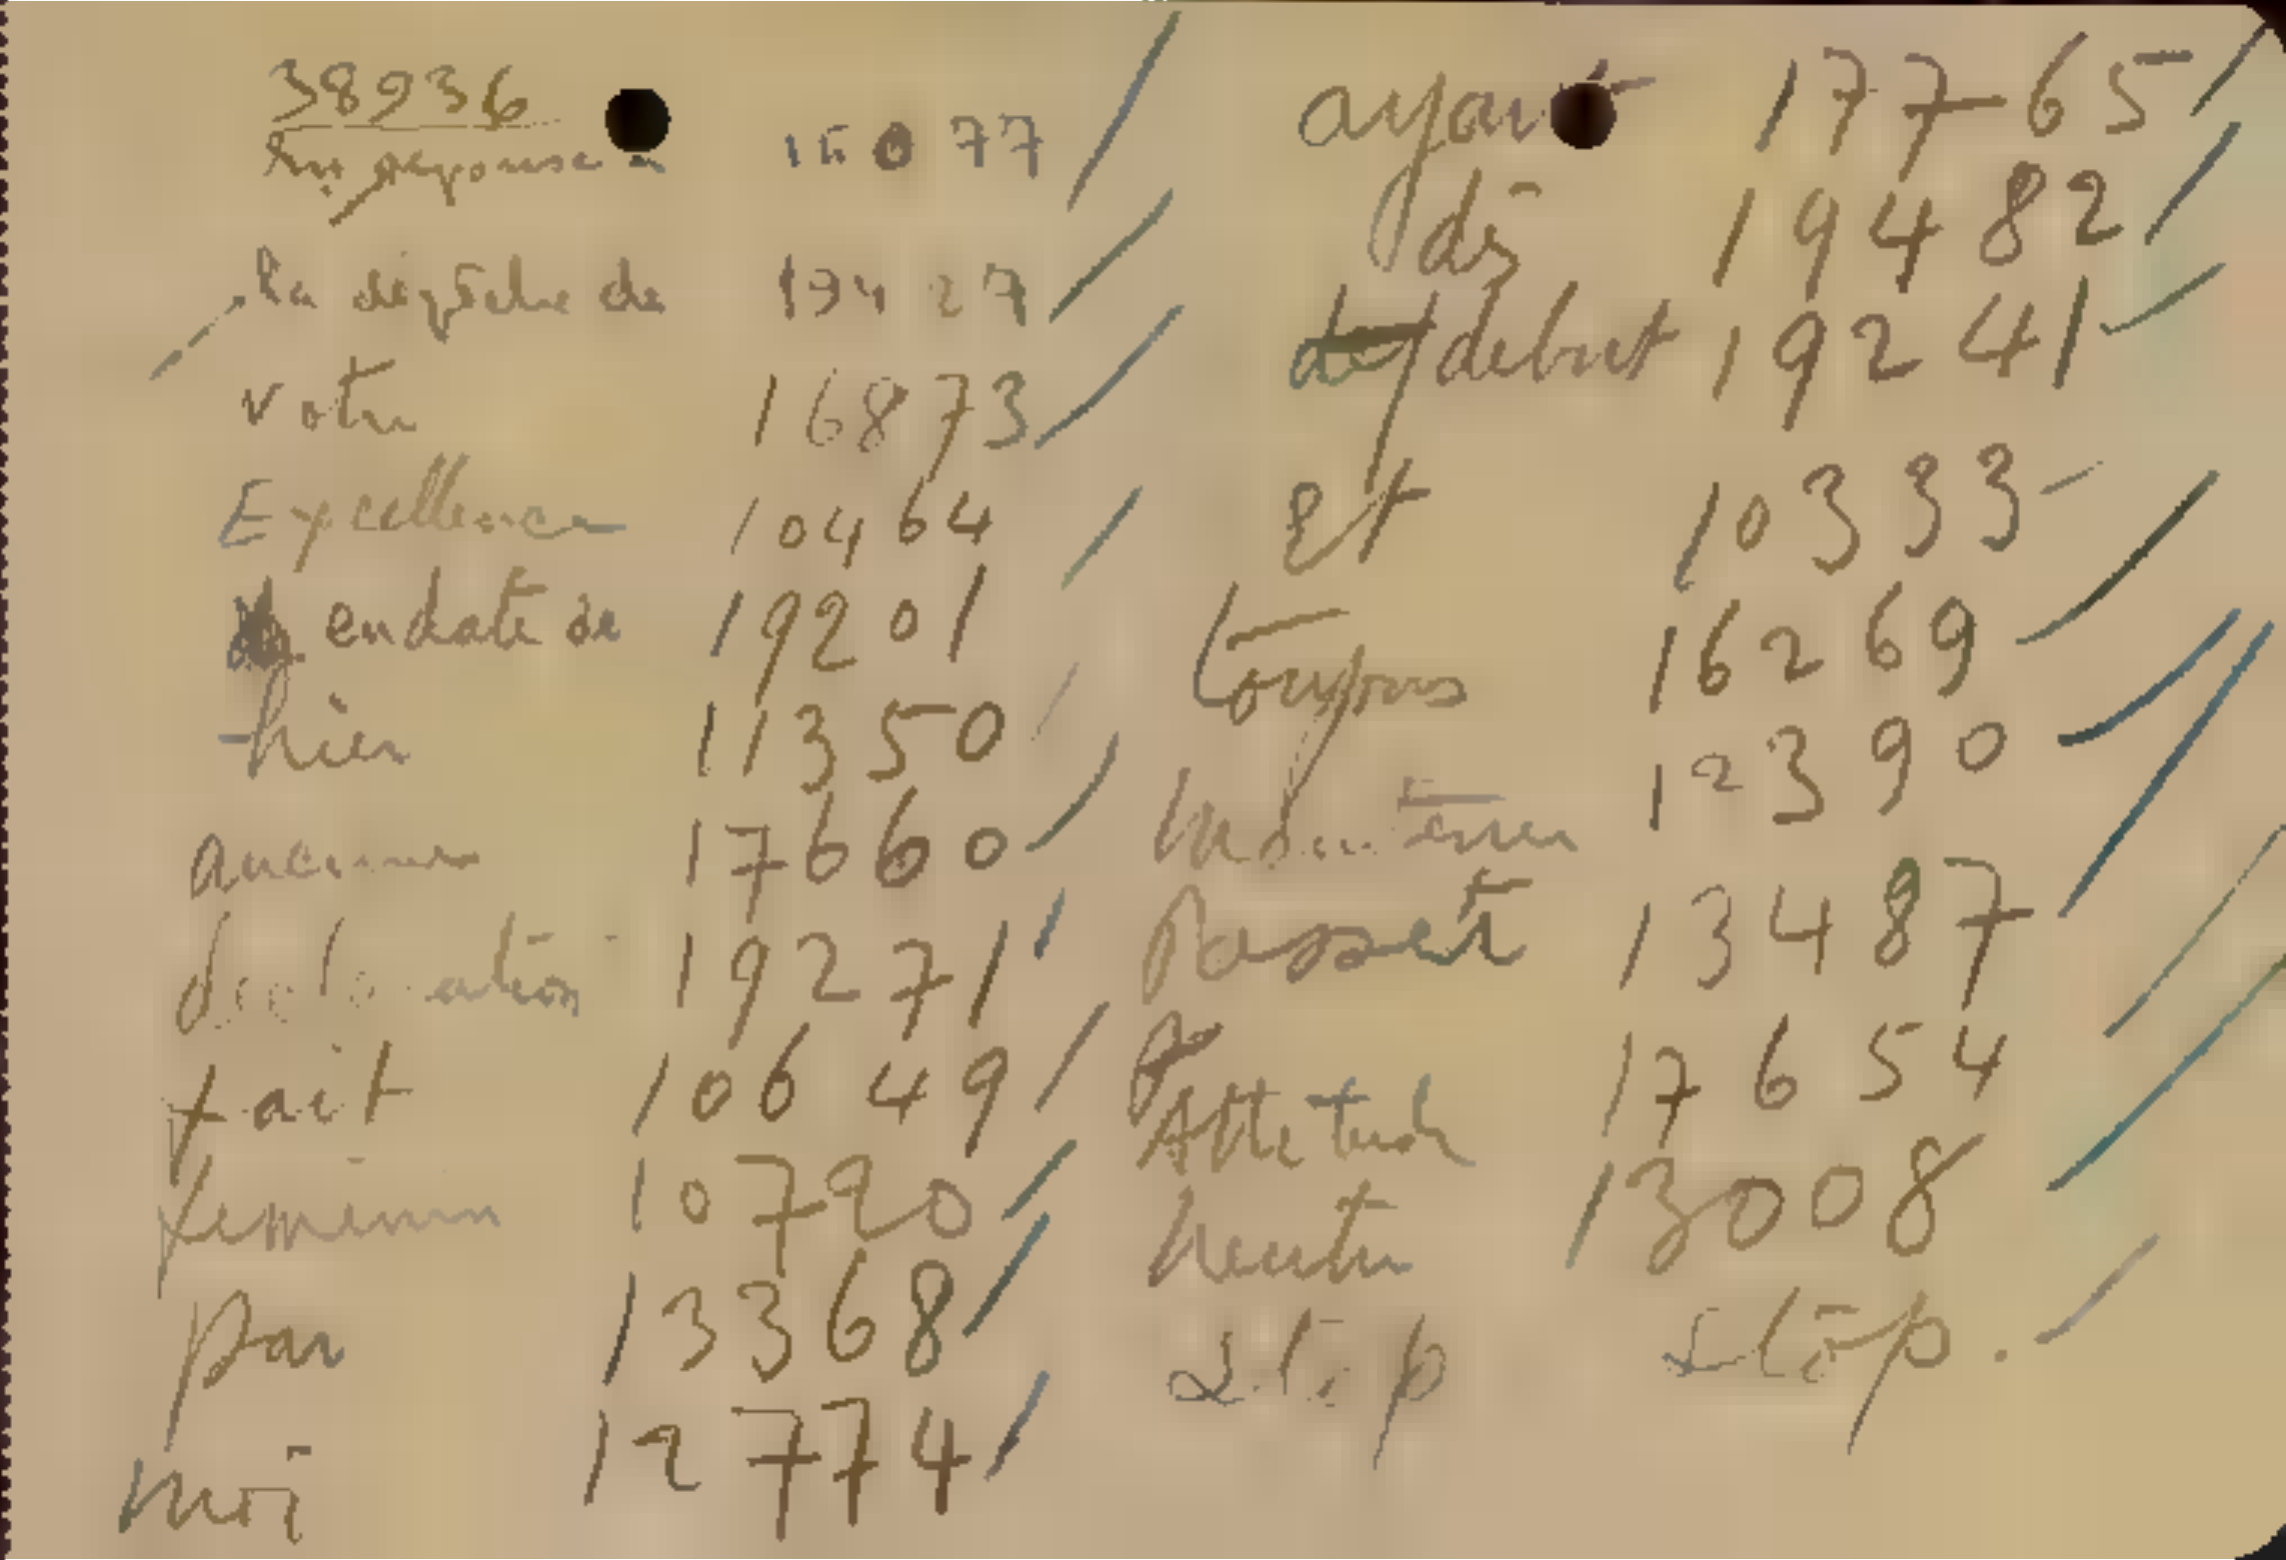 38936
En reponse a 15077
la dépêche de 19427
votre 16873
Excellence 10464
en date de 19201
hier 11350
aucune 17660
declaration 19271
fait 10649
feminin 10790
par 13368
moi 12774
ayant 17765
dès 19482
debut 19241
Et 10333
Toujours 16269
Maintenu 12390
Passet 13487
Attitude 17654
Neutre 13008
Stop Stop.